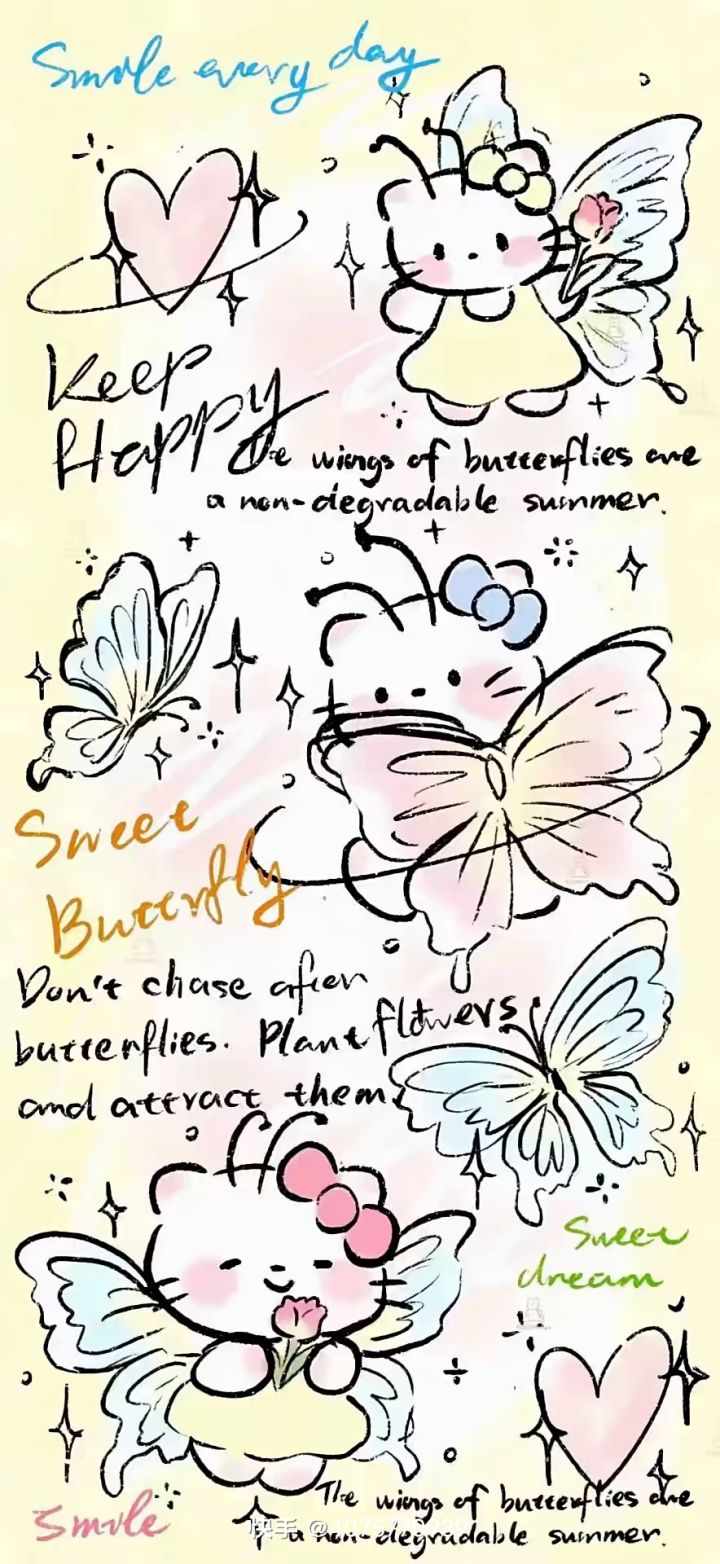 Smile every day
Keep
Happy
The wings of butterflies are
a non-degradable summer.
Sweet
Butterfly
Don't chase after
butterflies. Plant flowers
and attract them.
Sweet
dream
The wings of butterflies are
a non-degradable summer.
Smile
快手